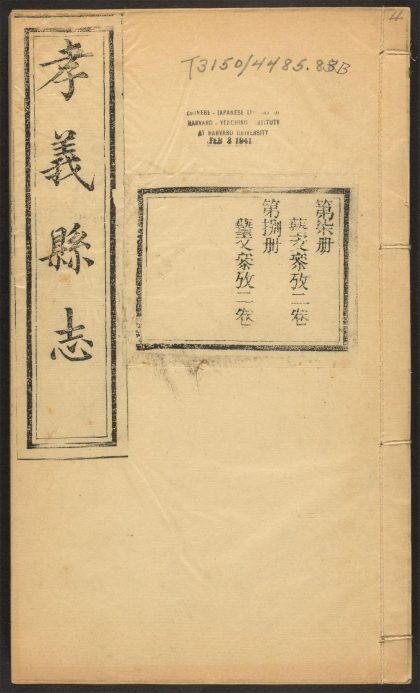 4
T3150/4485.83B
CHINESE - JAPANESE LIBRARY
HARVARD - YENCHING INSTITUTE
AT HARVARD UNIVERSITY
FEB 3 1941
孝義縣志
第柒册
藝文𠫵攷二卷
第捌册
藝文𠫵攷二卷